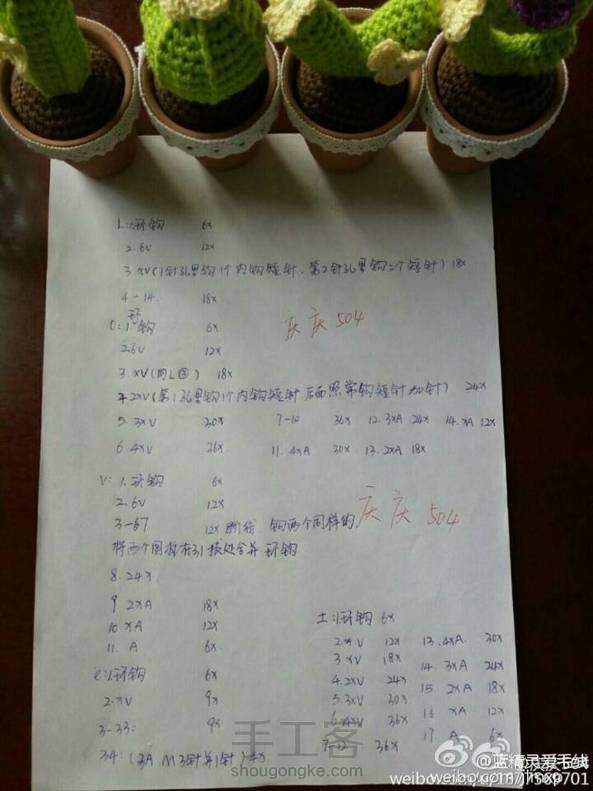 L:1.环钩 6x
2.6V 12x
3.xV(1针孔里钩1个内钩短针.第2针孔里钩2个短针) 18x
4-14. 18x
O:1环钩 6x
庆庆504
2.6V 12x
3.xV(同L③) 18x
4.2xV(第1孔里钩1个内钩短针后面照常钩短针加针) 24x
5.3xV 30x 7-10 36x 12.3xA 24x 14.xA 12x
6.4xV 36x 11.4xA 30x 13.2xA 18x
V:1.环钩 6x
2.6V 12x
3-67 12x 断线 钩两个同样的
庆庆504
将两个圆柱在 处合并环钩
8.24x
9.2xA 18x
10.xA 12x
11.A 6x
e:1环钩 6x
2.xV 9x
3-33: 9x
34:(3A M3针并1针)
土:1环钩 6x
2.xV 12x 13.4xA 30x
3.xV 18x 14.3xA 24x
4.2xV 24x 15 2xA 18x
5.3xV 30x 16 xA 12x
6.4xV 36x 17 A 6x
7-12 36x
手工客
shougongke.com
@蓝精灵爱毛线